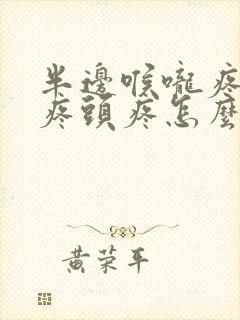 半邊喉嚨疼
疼頭疼怎麼
黃荣平